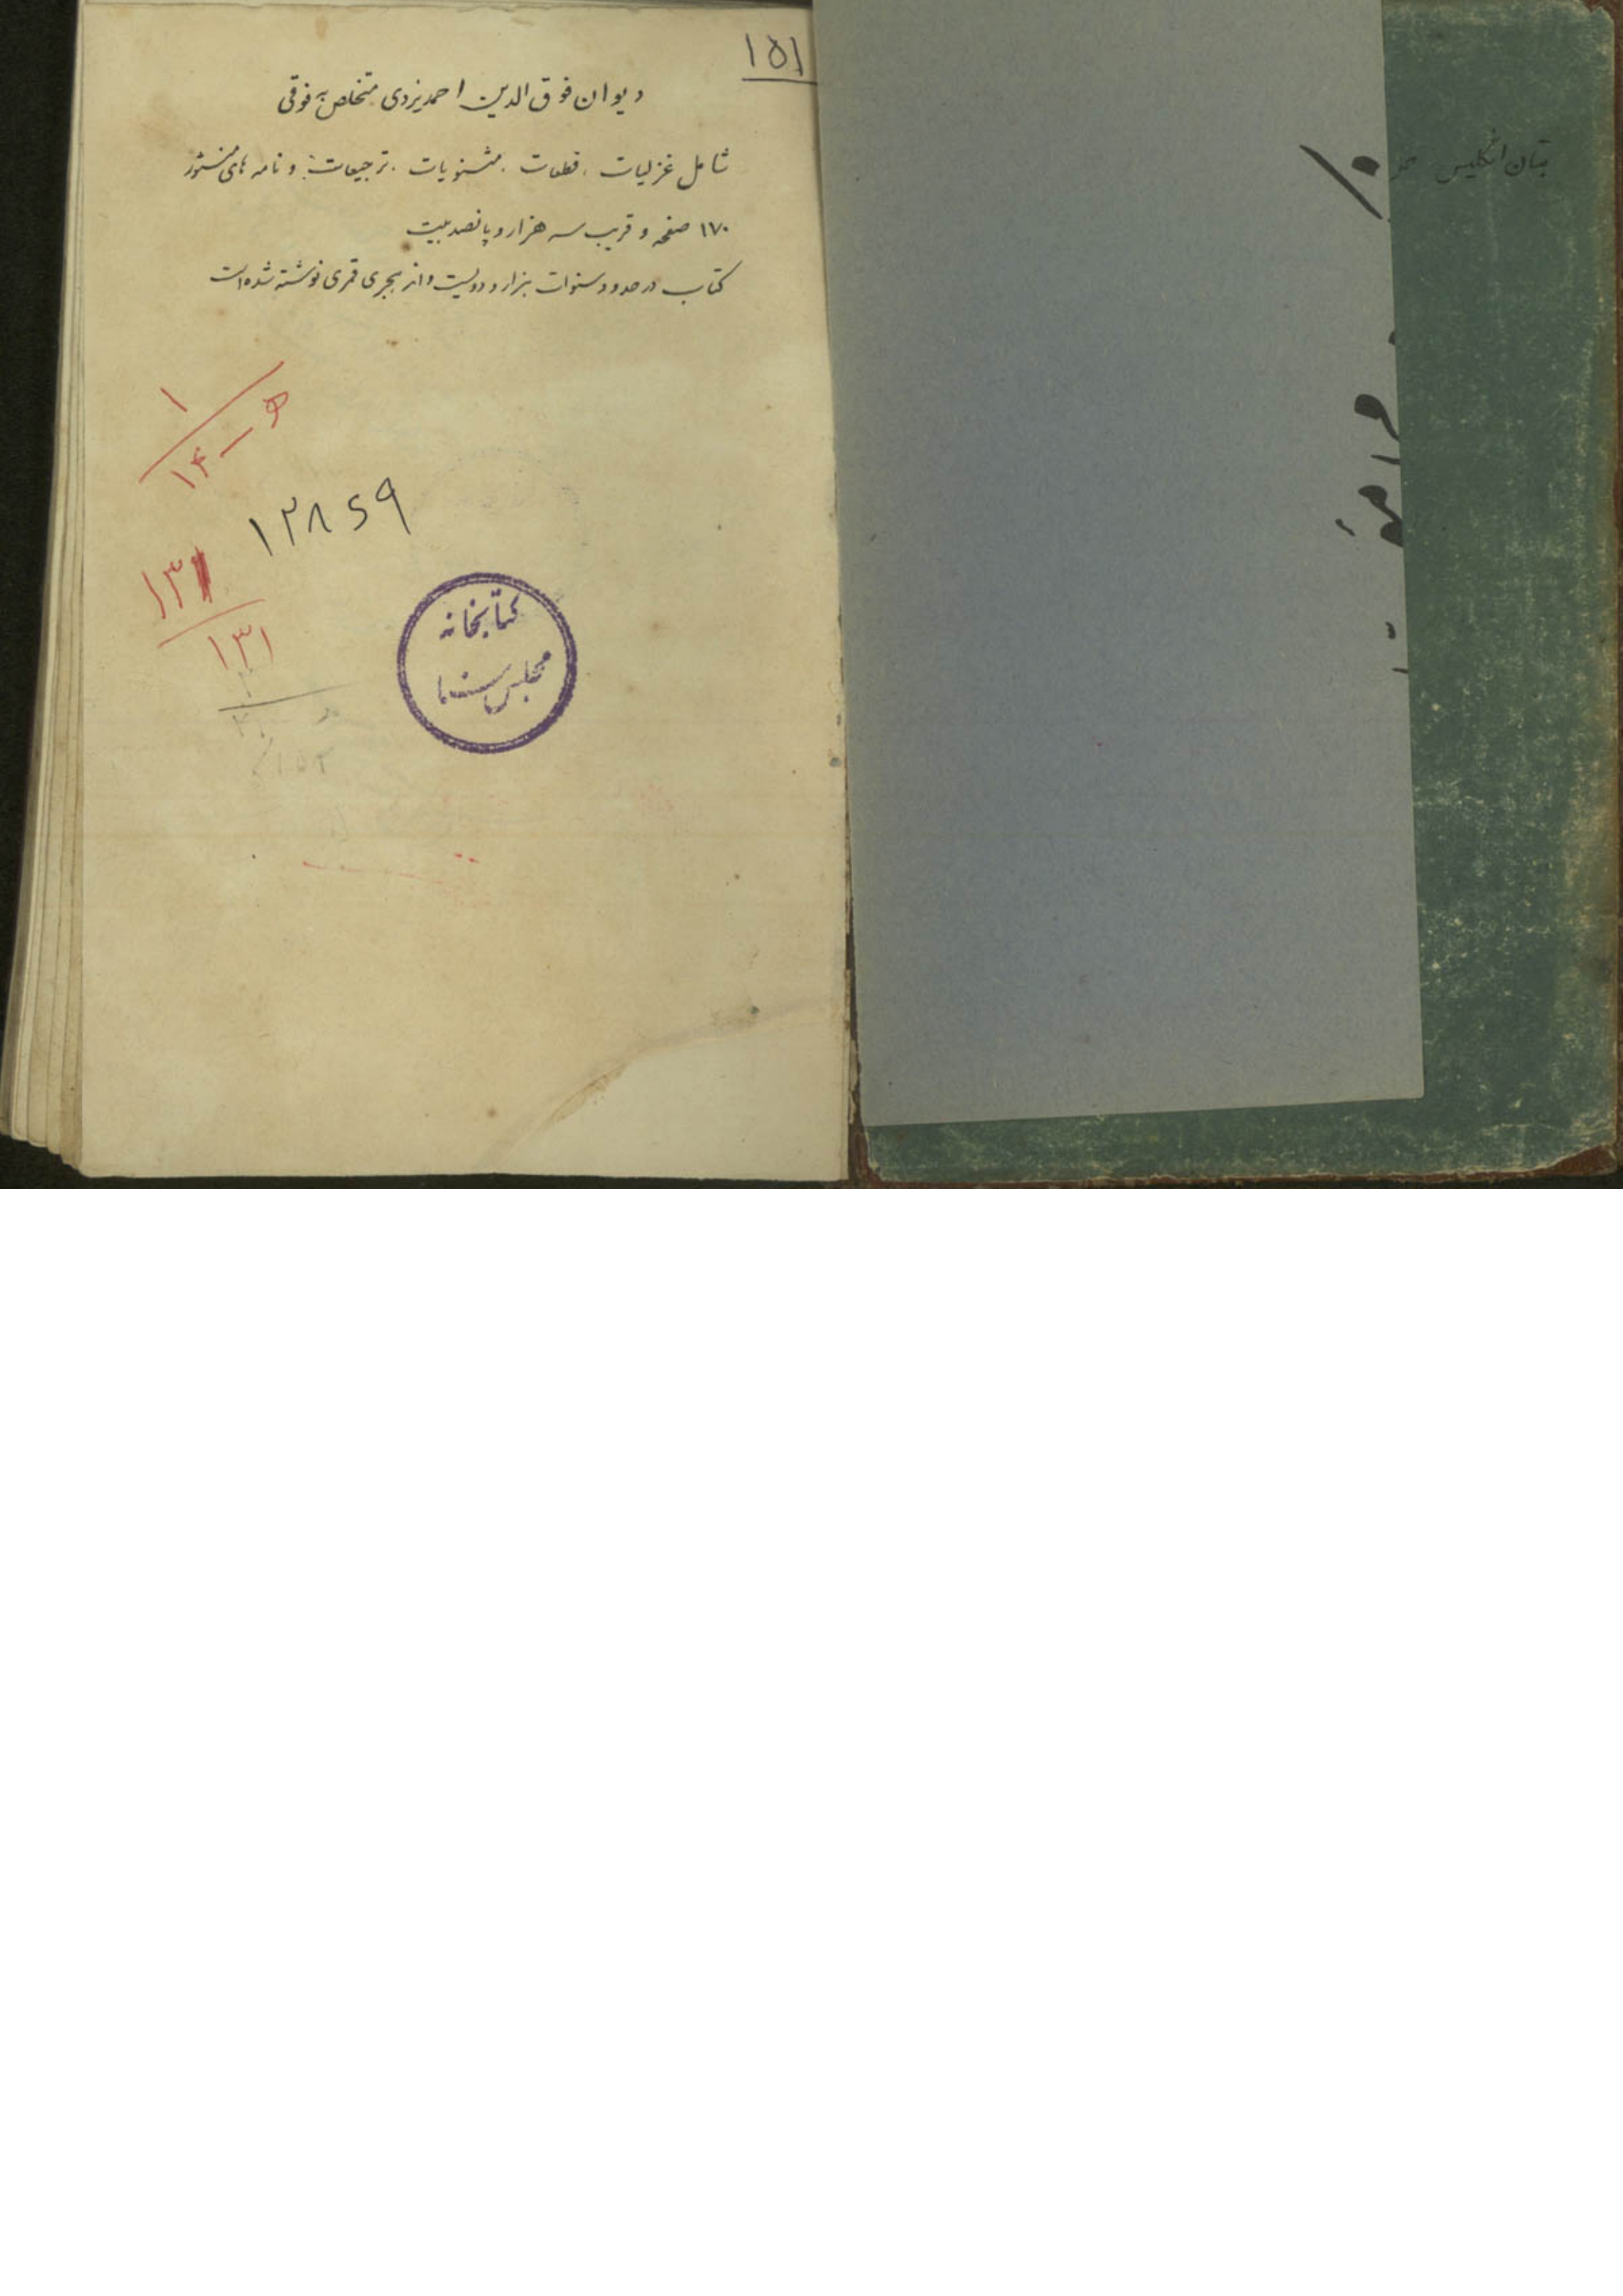 ۱۵۱
دیوان فوق الدین احمد یزدی متخلص به فوقی
شامل غزلیات . قطعات . مثنویات . ترجیعات . و نامه های منثور
۱۷۰ صفحه و قریب سه هزار و پانصد بیت
کتاب در حدود سنوات هزار و دویست و اند هجری قمری نوشته شده است
۱
۱۴ – ه
۱۳۸۶۹
۱۳۱
۱۳۱
کتابخانه
مجلس سنا
انگلیس